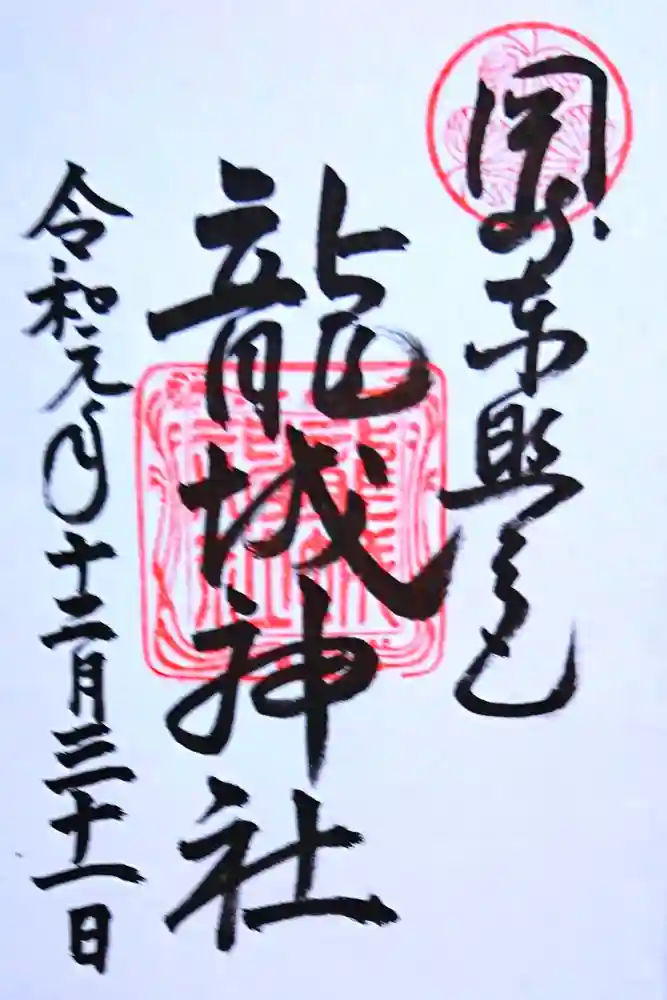 岡崎東照宮
龍城神社
令和元年十二月三十一日